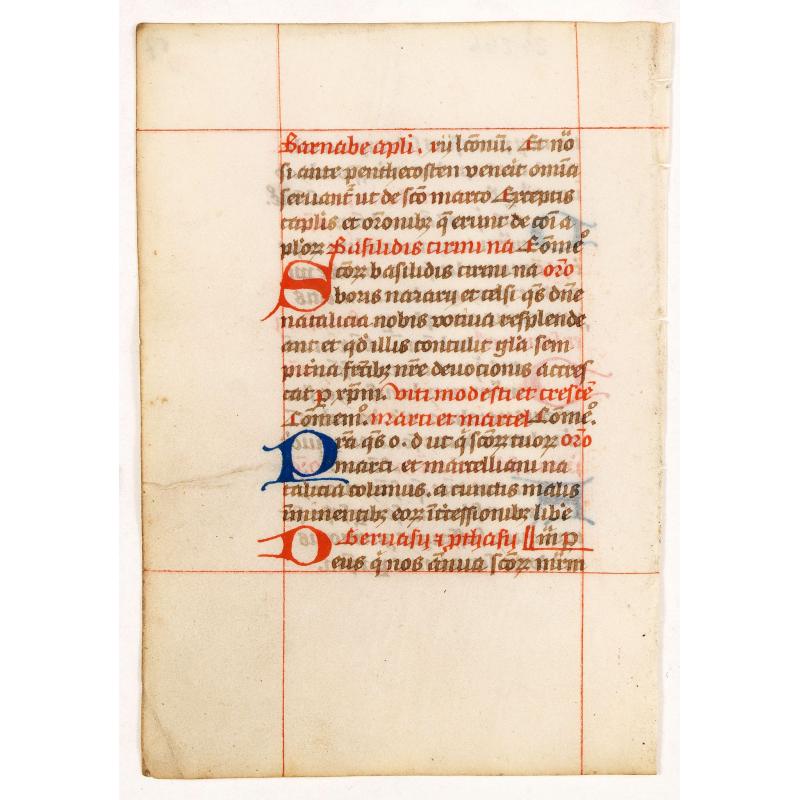 Barnabe apli. vij lc̄onū. Et nō
si ante penthecosten venerit om̄ia
seruant᷑ ut de sc̄o marco Exceptis
caplis et or̄onibꝫ q̄ erunt de cōi a
plorꝝ Basilidis cirini na Cōmeº
Sctorꝝ basilidis cirini na or̄o
boris nazarij et celsi q̄s dn̄e
natalicia nobis votiua resplende
ant et qd̄ illis contulit gl̄a sem
pitna fr̄ctibꝫ nr̄e deuocionis accres
cat ꝑ xp̄m. viti modesti et crescē
Cōmemº. marci et marcel Cōmeº.
Prā q̄s o. d ut q̄ sctorꝝ tuorꝝ or̄o
marci et marcelliani na
talicia colimus. a cunctis malis
īminentibꝫ eorꝝ īt̄cessionibꝫ libe
Geruasij ⁊ ꝓthasij iij ꝑ
Deus q̄ nos ānua sctorꝝ mr̄m